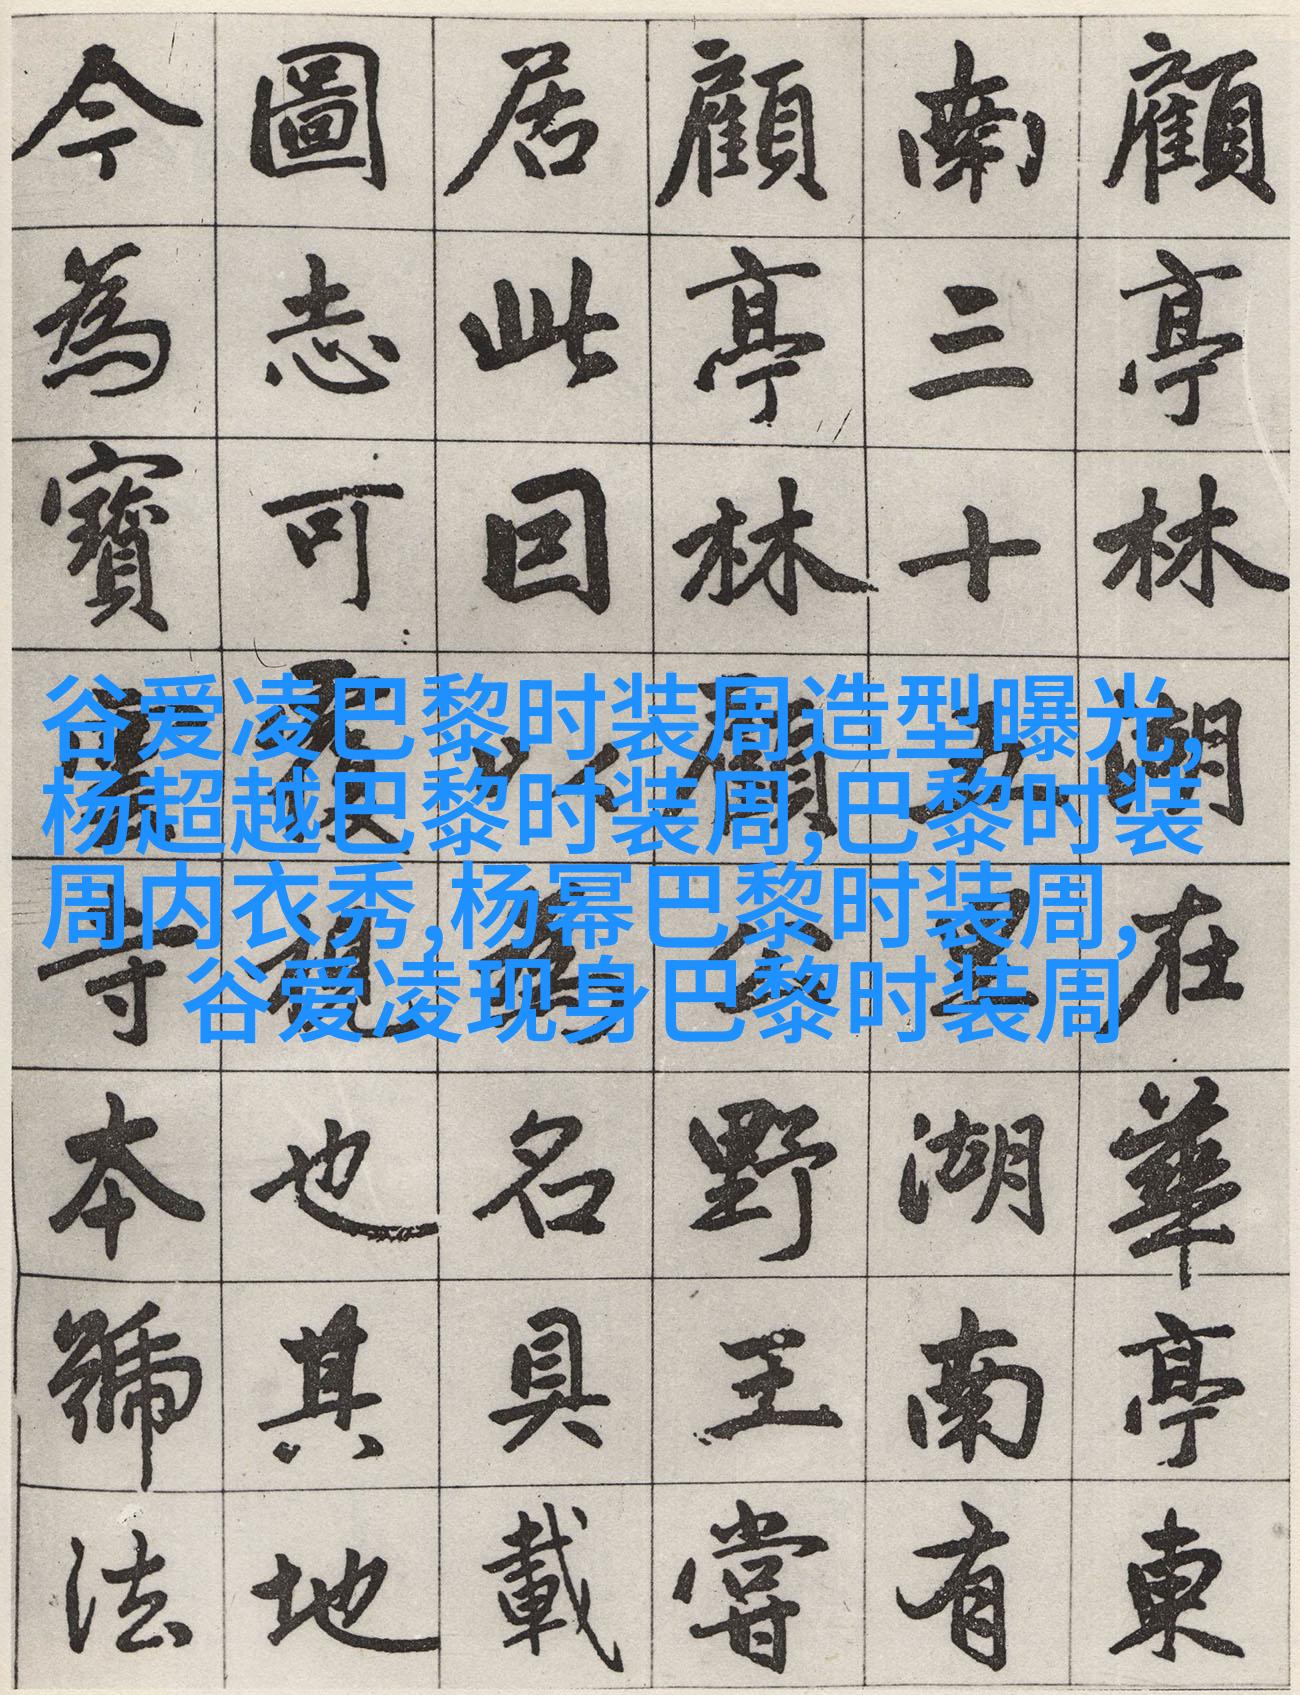 顧亭林湖在華亭東
南三十五里湖南有
顧亭林顧公野王嘗
居此囙以為名具載
圖志可覆視也其地
今為寶雲寺本號法
谷爱凌巴黎时装周造型曝光,
杨超越巴黎时装周,巴黎时装
周内衣秀,杨幂巴黎时装周,
谷爱凌现身巴黎时装周